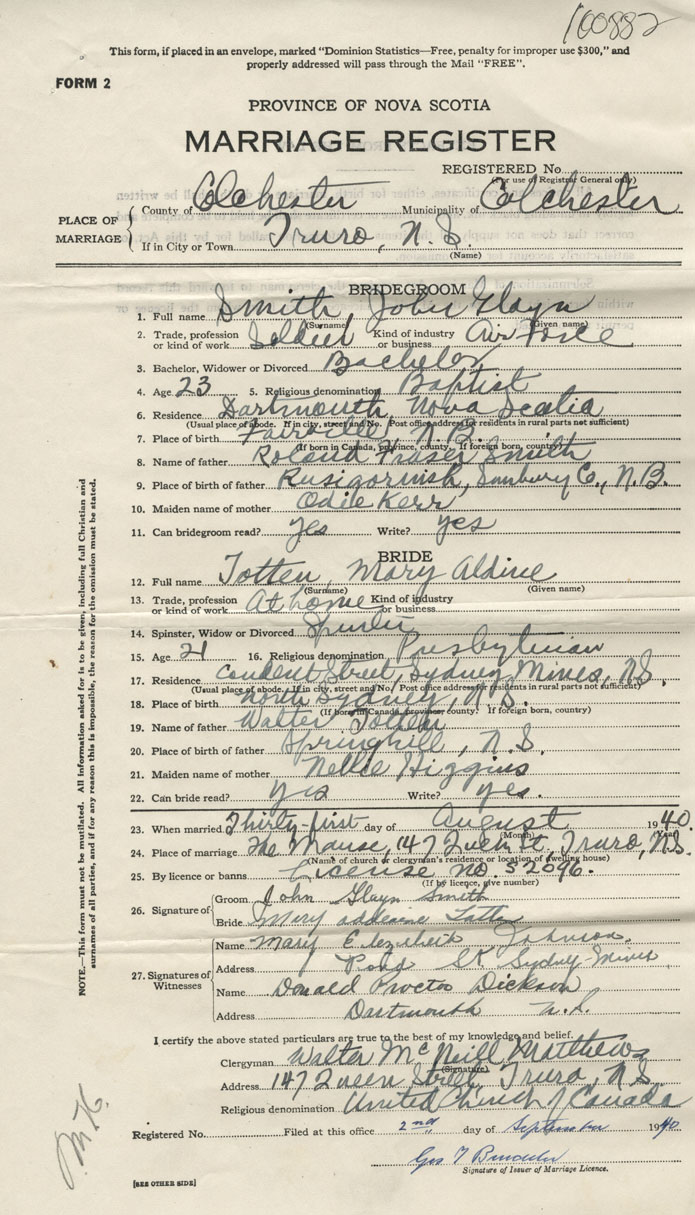 100882
This form, if placed in an envelope, marked "Dominion Statistics—Free, penalty for improper use $300," and
properly addressed will pass through the Mail "FREE".
FORM 2
PROVINCE OF NOVA SCOTIA
MARRIAGE REGISTER
REGISTERED No.
(For use of Registrar General only)
PLACE OF MARRIAGE
County of Colchester Municipality of Colchester
If in City or Town Truro, N.S.
(Name)
BRIDEGROOM
1. Full name Smith John Glayn
(Surname) (Given name)
2. Trade, profession or kind of work Soldier Kind of industry or business Air Force
3. Bachelor, Widower or Divorced Bachelor
4. Age 23 5. Religious denomination Baptist
6. Residence Dartmouth, Nova Scotia
(Usual place of abode. If in city, street and No. Post office address for residents in rural parts not sufficient)
7. Place of birth Fairville, N.B.
(If born in Canada, province, county. If foreign born, country)
8. Name of father Roland Smith
9. Place of birth of father Sunbury Co., N.B.
10. Maiden name of mother Odie Kerr
11. Can bridegroom read? yes Write? yes
BRIDE
12. Full name Totten, Mary Aldine
(Surname) (Given name)
13. Trade, profession or kind of work At home Kind of industry or business
14. Spinster, Widow or Divorced
15. Age 21 16. Religious denomination Presbyterian
17. Residence Street, Sydney Mines, N.S.
(Usual place of abode. If in city, street and No. Post office address for residents in rural parts not sufficient)
18. Place of birth North Sydney, N.S.
(If born in Canada, province, county. If foreign born, country)
19. Name of father Walter Totten
20. Place of birth of father Springhill, N.S.
21. Maiden name of mother Nellie Higgins
22. Can bride read? Yes Write? yes.
23. When married Thirty-first day of August 1940.
(Month) (Year)
24. Place of marriage The Manse, 147 Queen St, Truro, N.S.
(Name of church or clergyman's residence or location of dwelling house)
25. By licence or banns License no. 32096.
(If by licence, give number)
26. Signature of
Groom John Glayn Smith
Bride Mary Totten
27. Signatures of Witnesses
Name Mary Elizabeth Johnson.
Address St Sydney Mines
Name Donald Proctor Dickson
Address Dartmouth N.S.
I certify the above stated particulars are true to the best of my knowledge and belief.
Clergyman Walter McNeill Matthews
(Signature)
Address 147 Queen Street, Truro, N.S.
Religious denomination United Church of Canada
Registered No. Filed at this office 2nd day of September 1940
Geo T
Signature of Issuer of Marriage Licence.
[SEE OTHER SIDE]
NOTE.—This form must not be mutilated. All information asked for is to be given, including full Christian and
surnames of all parties, and if for any reason this is impossible, the reason for the omission must be stated.